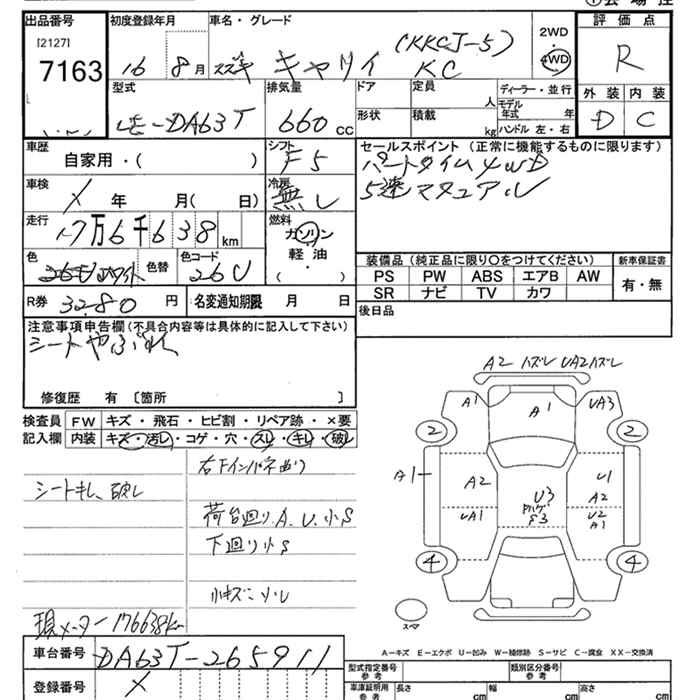 出品番号 初度登録年月 車名・グレード 2WD 評価点
[2127]
7163 16 8月 スズキ キャリイ (KKCJ-5) KC 4WD R
型式 排気量 ドア 定員 人 ディーラー・並行 外装 内装
DA63T 660cc 形状 積載 kg モデル年式 年 ハンドル 左・右 D C
車歴 シフト セールスポイント(正常に機能するものに限ります)
自家用・( ) F5 パートタイム4WD
車検 冷房 5速マニュアル
X 年 月( 日) 無し
走行 燃料
17万6千638km ガソリン
色 色替 色コード 軽油・
26U ( )
装備品(純正品に限り○をつけてください) 新車保証書
PS PW ABS エアB AW 有・無
SR ナビ TV カワ
R券 3280円 名変通知期限 月 日 後日品
注意事項申告欄(不具合内容等は具体的に記入して下さい)
シートやぶれ
修復歴 有〔箇所 〕
検査員 FW キズ・飛石・ヒビ割・リペア跡・×要
記入欄 内装 キズ・汚し・コゲ・穴・スレ・キレ・破レ
シートキレ、破レ
荷台廻りA、U、小S
下廻り小S
現メーター176638km
A2 ハズレ UA2ハズレ
A1 A1 UA3
2 2
A1 A2 U3 U1
A2
UA1 S3 U2
A1
4 4
スペア
A-キズ E-エクボ U-凹み W-補修跡 S-サビ C-腐食 XX-交換済
車台番号 DA63T-265911 型式指定番号 参考 類別区分番号 参考
登録番号 X 車庫証明用 参考 長さ cm 幅 cm 高さ cm